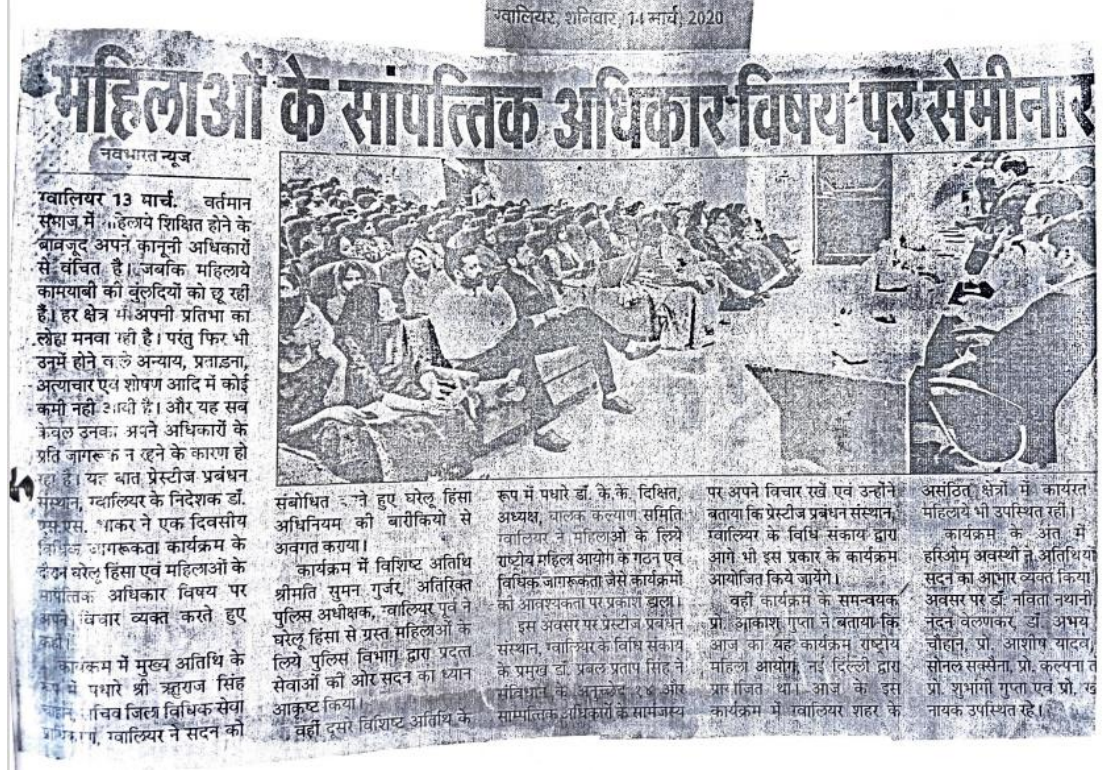 ग्वालियर, शनिवार, 14 मार्च, 2020
महिलाओं के सांपत्तिक अधिकार विषय पर सेमीनार
नवभारत न्यूज
ग्वालियर 13 मार्च. वर्तमान
समाज में शिक्षित होने के
बावजूद अपने कानूनी अधिकारों
से वंचित है। जबकि महिलाये
कामयाबी की बुलंदियों को छू रही
है। हर क्षेत्र में अपनी प्रतिभा का
लोहा मनवा रही है। परंतु फिर भी
उनमें होने वाले अन्याय, प्रताडना,
अत्याचार एवं शोषण आदि में कोई
कमी नही आयी है। और यह सब
केवल उनका अपने अधिकारों के
प्रति जागरूक न रहने के कारण हो
रहा है। यह बात प्रेस्टीज प्रबंधन
संस्थान, ग्वालियर के निदेशक डॉ.
ने एक दिवसीय
जागरूकता कार्यक्रम के
दौरान घरेलू हिंसा एवं महिलाओं के
अधिकार विषय पर
अपने विचार व्यक्त करते हुए
कही।
कार्यक्रम में मुख्य अतिथि के
रूप में पधारे श्री ऋतुराज सिंह
जिला विधिक सेवा
ग्वालियर ने सदन को
संबोधित करते हुए घरेलू हिंसा
अधिनियम की बारीकियो से
अवगत कराया।
कार्यक्रम में विशिष्ट अतिथि
श्रीमति सुमन गुर्जर, अतिरिक्त
पुलिस अधीक्षक, ग्वालियर पूर्व ने
घरेलू हिंसा से ग्रस्त महिलाओं के
लिये पुलिस विभाग द्वारा प्रदत्त
सेवाओं की ओर सदन का ध्यान
आकृष्ट किया।
वहीं दूसरे विशिष्ट अतिथि के
रूप में पधारे डॉ. के.के. दिक्षित,
अध्यक्ष, बालक कल्याण समिति
ग्वालियर ने महिलाओ के लिये
राष्टीय महिला आयोग के गठन एवं
विधिक जागरूकता जैसे कार्यक्रमों
की आवश्यकता पर प्रकाश डाला।
इस अवसर पर प्रेस्टीज प्रबंधन
संस्थान, ग्वालियर के विधि संकाय
के प्रमुख डॉ. प्रबल प्रताप सिंह ने
संविधान के अनुच्छेद १४ और
साम्पत्तिक अधिकारों के सामंजस्य
पर अपने विचार रखें एवं उन्होंने
बताया कि प्रेस्टीज प्रबंधन संस्थान,
ग्वालियर के विधि संकाय द्वारा
आगे भी इस प्रकार के कार्यक्रम
आयोजित किये जायेंगे।
वहीं कार्यक्रम के समन्वयक
प्रो. आकाश गुप्ता ने बताया कि
आज का यह कार्यक्रम राष्टीय
महिला आयोग, नई दिल्ली द्वारा
प्रायोजित था। आज के इस
कार्यक्रम में ग्वालियर शहर के
असंठित क्षेत्रों में कार्यरत
महिलाये भी उपस्थित रही।
कार्यक्रम के अंत में
हरिओम अवस्थी ने अतिथियों
सदन का आभार व्यक्त किया
अवसर पर डॉ. नविता नथानी
नंदन वेलणकर, डॉ. अभय
चौहान, प्रो. आशीष यादव,
सोनल सक्सेना, प्रो. कल्पना
प्रो. शुभांगी गुप्ता एवं प्रो.
नायक उपस्थित रहे।